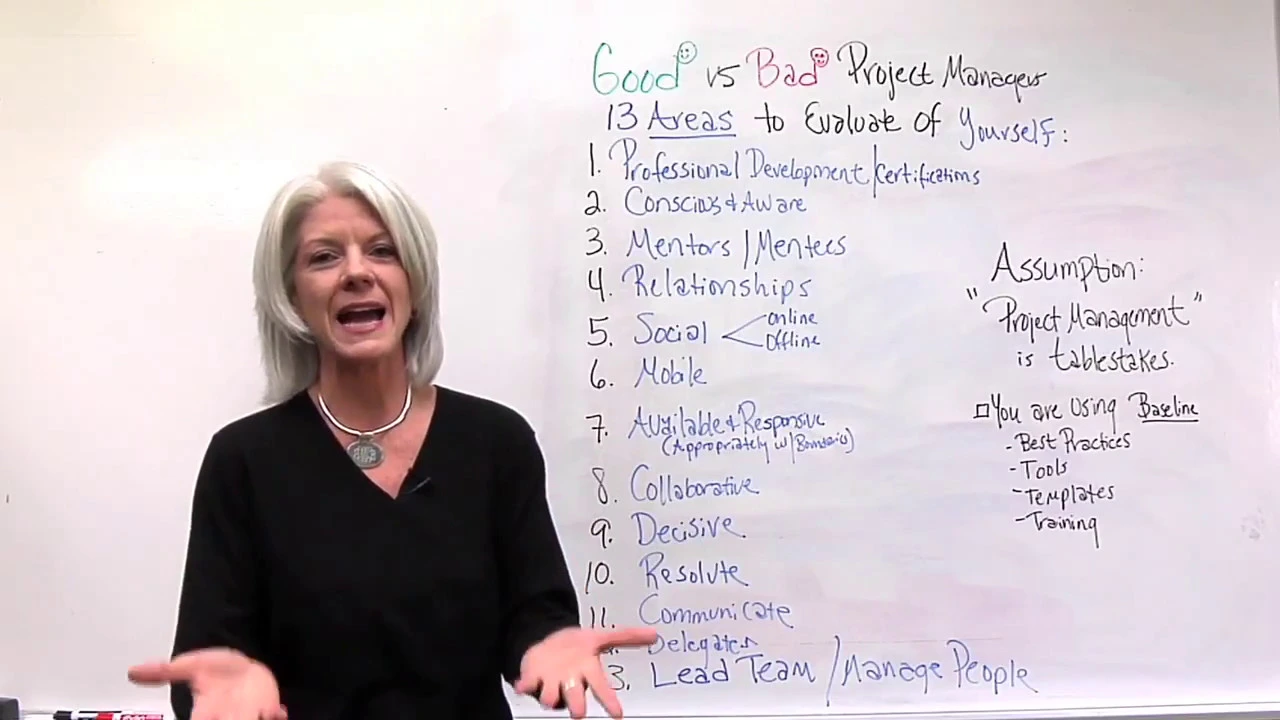 Good vs Bad Project Managers
13 Areas to Evaluate of Yourself:
1. Professional Development/Certifications
2. Conscious & Aware
3. Mentors / Mentees
4. Relationships
5. Social
online
offline
6. Mobile
7. Available & Responsive
(Appropriately w/
8. Collaborative
9. Decisive
10. Resolute
11. Communicate
Delegates
3. Lead Team / Manage People
Assumption:
"Project Management"
is tablestakes.
You are Using Baseline
- Best Practices
- Tools
- Templates
- Training